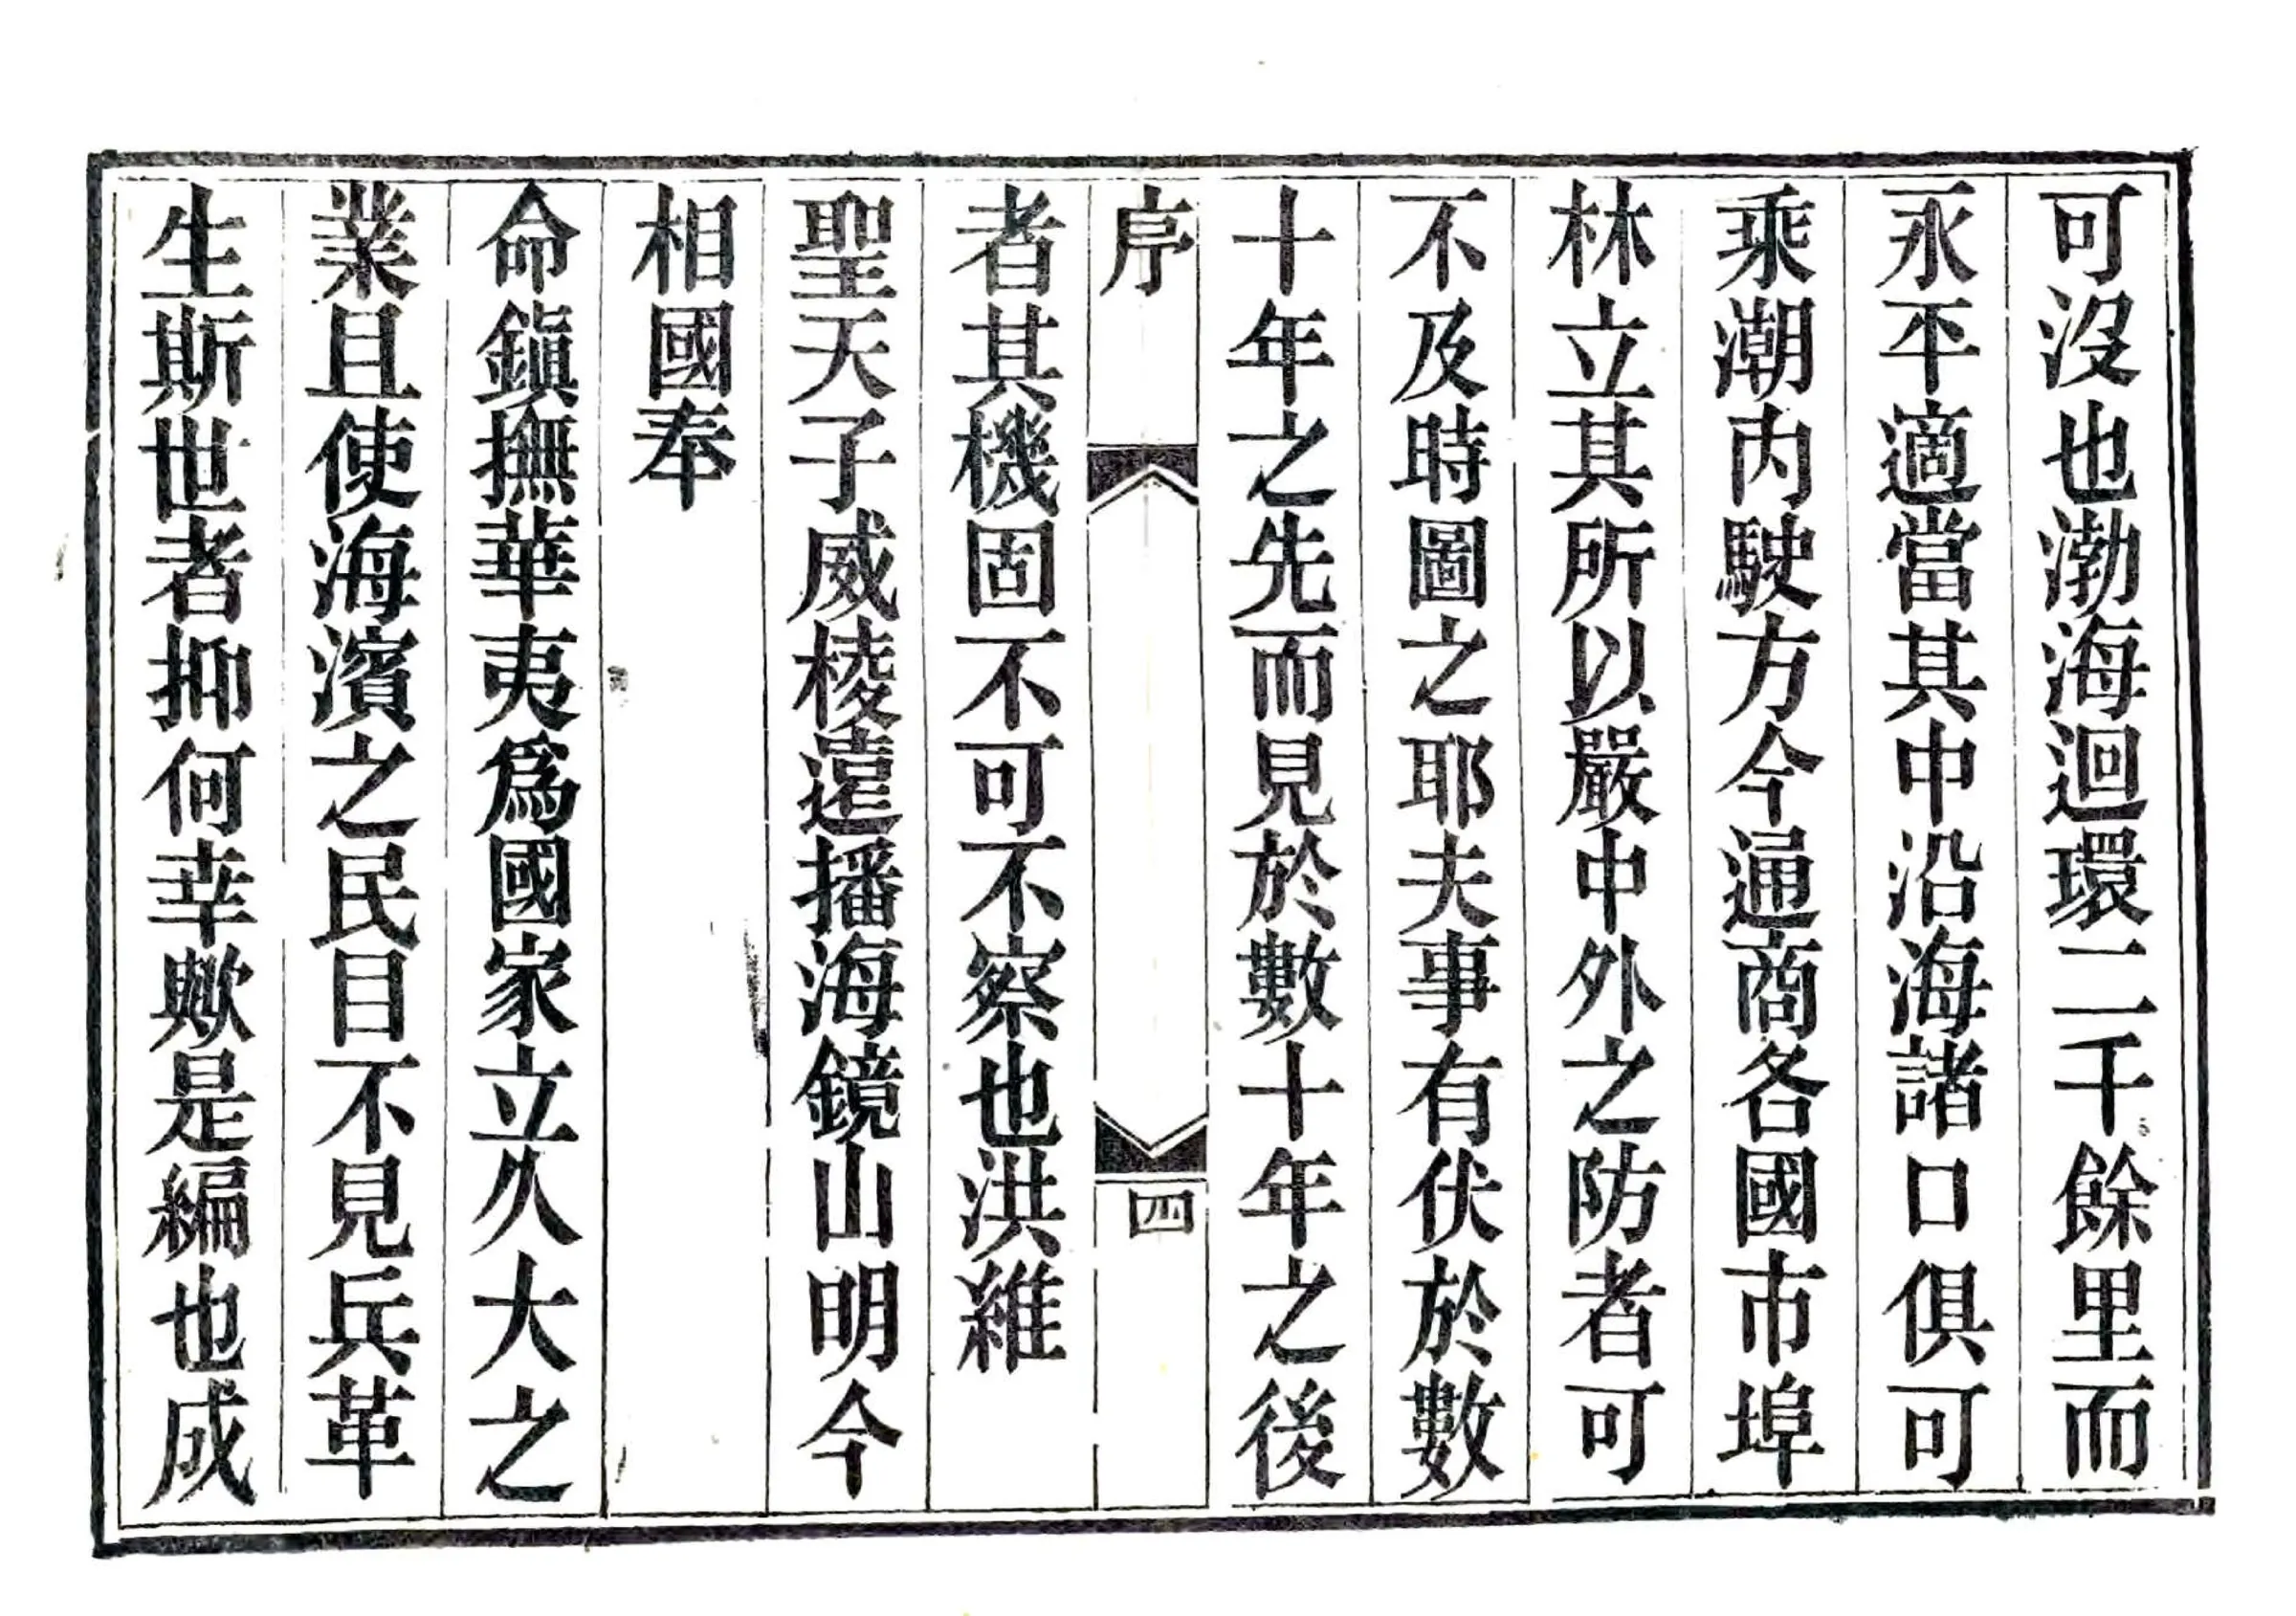 可沒也渤海迴環二千餘里而
永平適當其中沿海諸口俱可
乘潮内駛方今通商各國市埠
林立其所以嚴中外之防者可
不及時圖之耶夫事有伏於數
十年之先而見於數十年之後
序
四
者其機固不可不察也洪維
聖天子威棱遠播海鏡山明今
相國奉
命鎭撫華夷爲國家立久大之
業且使海濱之民目不見兵革
生斯世者抑何幸歟是編也成